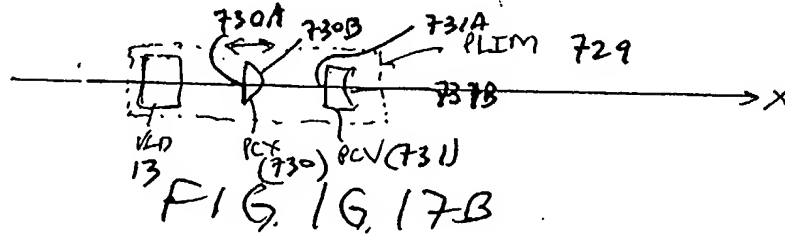 730A 730B 731A
PLIM 729
731B X
VLD PCX PCV (731)
13 (730)
FIG. 1G.17B